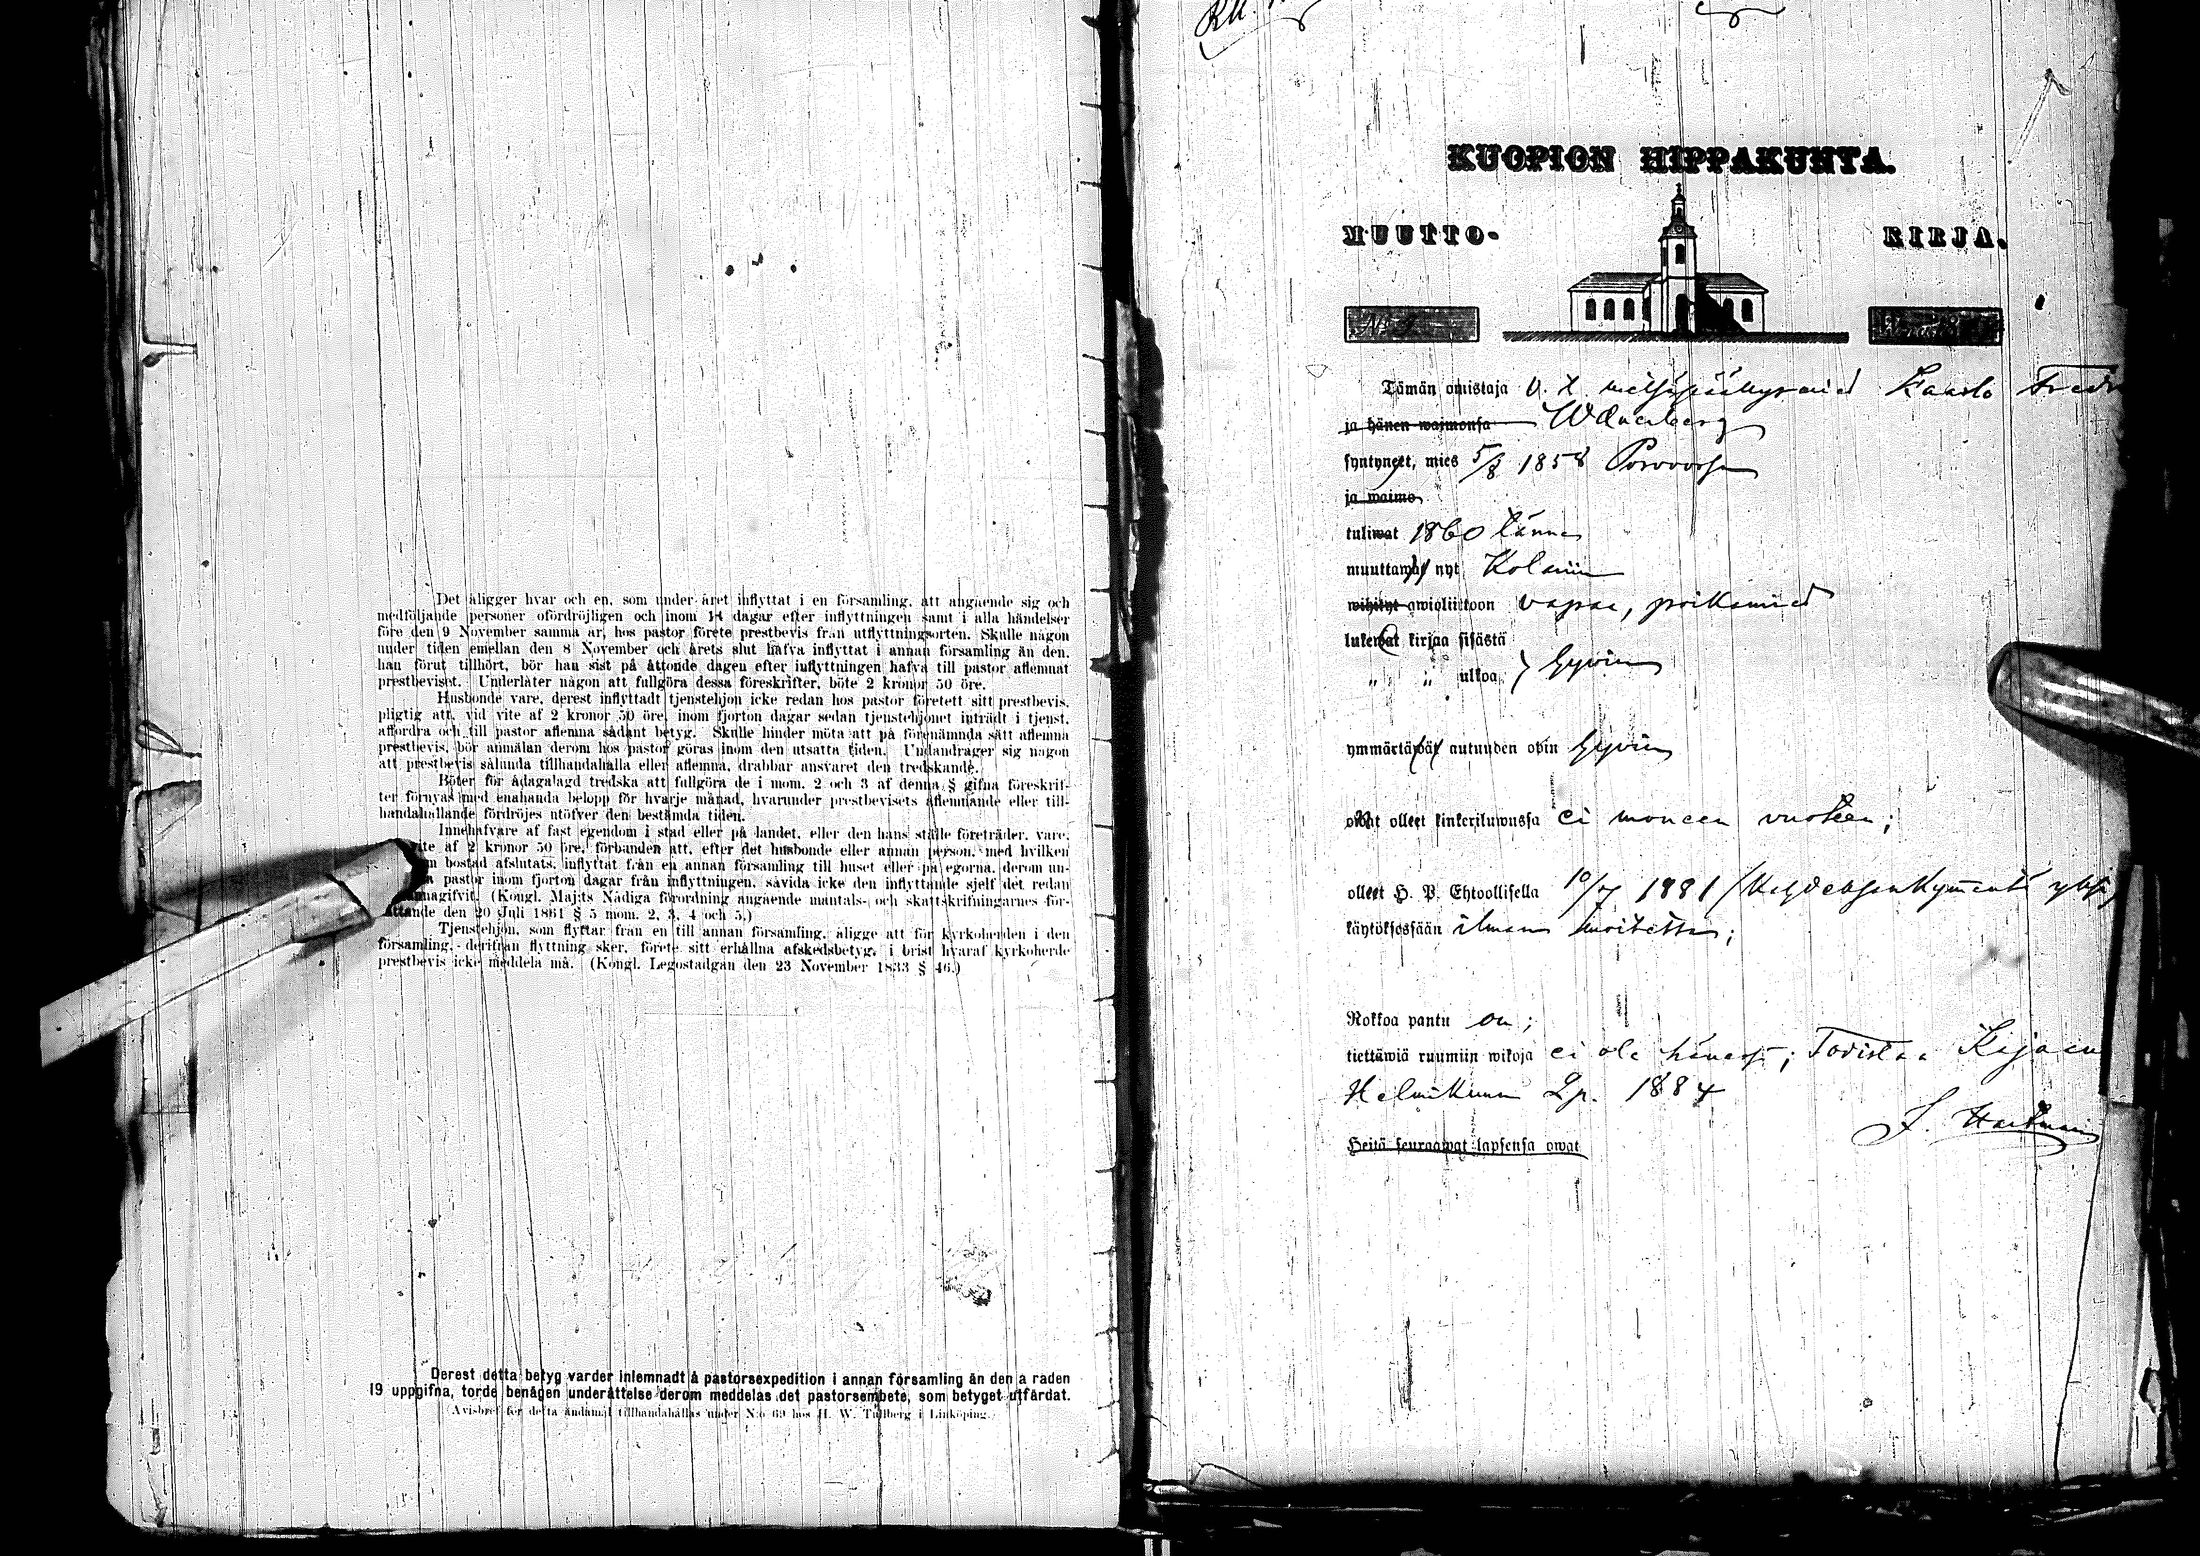 Det åligger hvar och en, som under året inflyttat i en församling, att angående sig och
medföljande personer ofördröjligen och inom 14 dagar efter inflyttningen samt i alla händelser
före den 9 November samma år, hos pastor förete prestbevis från utflyttningsorten. Skulle någon
under tiden emellan den 8 November och årets slut hafva inflyttat i annan församling än den,
han förut tillhört, bör han sist på åttonde dagen efter inflyttningen hafva till pastor aflemnat
prestbeviset. Underlåter någon att fullgöra dessa föreskrifter, böte 2 kronor 50 öre.
Husbonde vare, derest inflyttadt tjenstehjon icke redan hos pastor företett sitt prestbevis,
pligtig att, vid vite af 2 kronor 50 öre, inom fjorton dagar sedan tjenstehjonet inträdt i tjenst,
affordra och till pastor aflemna sådant betyg. Skulle hinder möta att på förenämnda sätt aflemna
prestbevis, bör anmälan derom hos pastor göras inom den utsatta tiden. Undandrager sig någon
att prestbevis sålunda tillhandahålla eller aflemna, drabbar ansvaret den tredskande.
Böter för ådagalagd tredska att fullgöra de i mom. 2 och 3 af denna § gifna föreskrif-
ter förnyas med enahanda belopp för hvarje månad, hvarunder prestbevisets aflemnande eller till-
handahållande fördröjes utöfver den bestämda tiden.
Innehafvare af fast egendom i stad eller på landet, eller den hans ställe företräder, vare,
vite af 2 kronor 50 öre, förbunden att, efter det husbonde eller annan person, med hvilken
bostad afslutats, inflyttat från en annan församling till huset eller på egorna, derom un-
pastor inom fjorton dagar från inflyttningen, såvida icke den inflyttande sjelf det redan
(Kongl. Maj:ts Nådiga förordning angående mantals- och skattskrifningarnes för-
rättande den 20 Juli 1861 § 5 mom. 2, 3, 4 och 5.)
Tjenstehjon, som flyttar från en till annan församling, åligge att för kyrkoherden i den
församling, derifrån flyttning sker, förete sitt erhållna afskedsbetyg, i brist hvaraf kyrkoherde
prestbevis icke meddela må. (Kongl. Legostadgan den 23 November 1833 § 46.)
Derest detta betyg varder inlemnadt å pastorsexpedition i annan församling än den å raden
19 uppgifna, torde benägen underättelse derom meddelas det pastorsembete, som betyget utfärdat.
Avisbref för detta ändamål tillhandahållas under N:o 69 hos H. W. Tullberg i Linköping.
KUOPION HIPPAKUNTA.
MUUTTO- KIRJA.
Tämän omistaja v. t. metsäpäällysmies Kaarlo Fredr
ja hänen waimonsa
syntyneet, mies 5/8 1858 Porvoossa
ja waimo
tuliwat 1860 tänne
muuttawat nyt
wihityt awioliittoon vapaa, poikamies
lukewat kirjaa sisästä
" " ulkoa hyvin
ymmärtäwät autuuden opin hyvin
owat olleet kinkeriluwussa ei moneen vuoteen;
olleet H. P. Ehtoollisella 10/7 1881 (Kahdeksankymmentä yksi)
käytöksessään ilman moitetta;
Rokkoa pantu on;
tiettäwiä ruumiin wikoja ei ole hänessä; Todistaa Kajaan
Helmikuun 2 p. 1884
Heitä seuraawat lapsensa owat